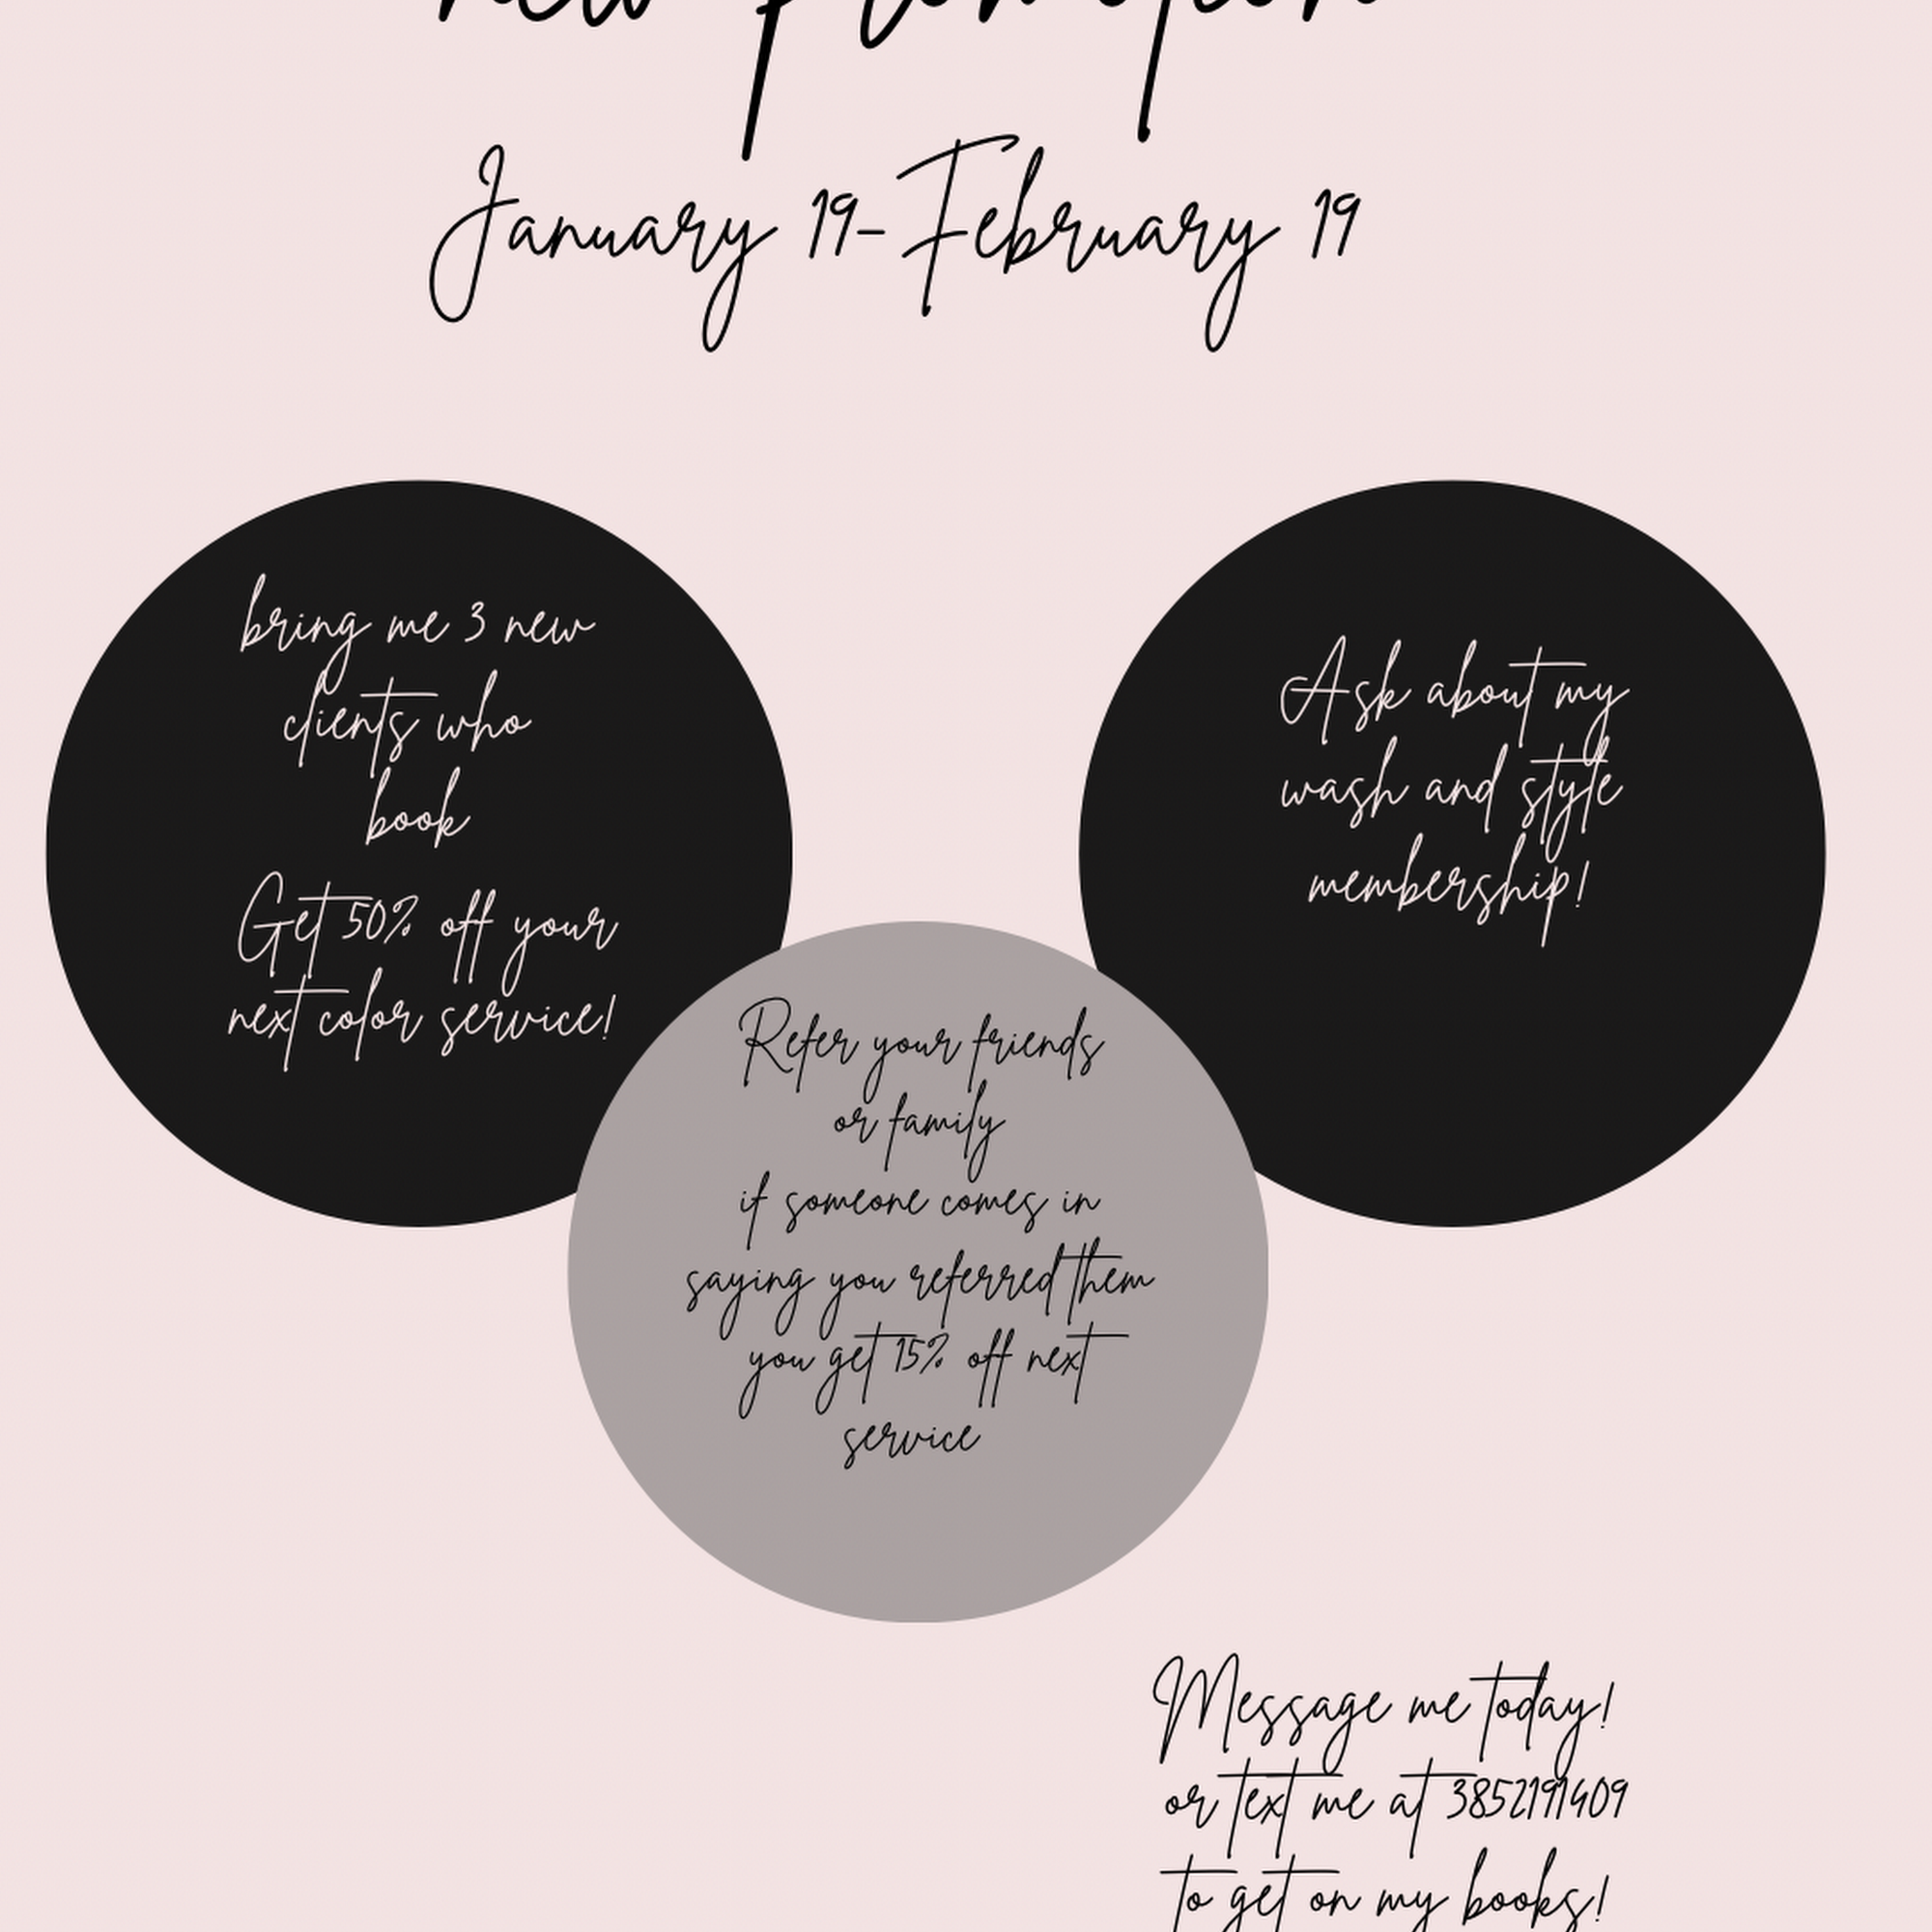 new Promotion
January 19-February 19
bring me 3 new
clients who
book
Get 50% off your
next color service!
Ask about my
wash and style
membership!
Refer your friends
or family
if someone comes in
saying you referred them
you get 15% off next
service
Message me today!
or text me at 3852191409
to get on my books!